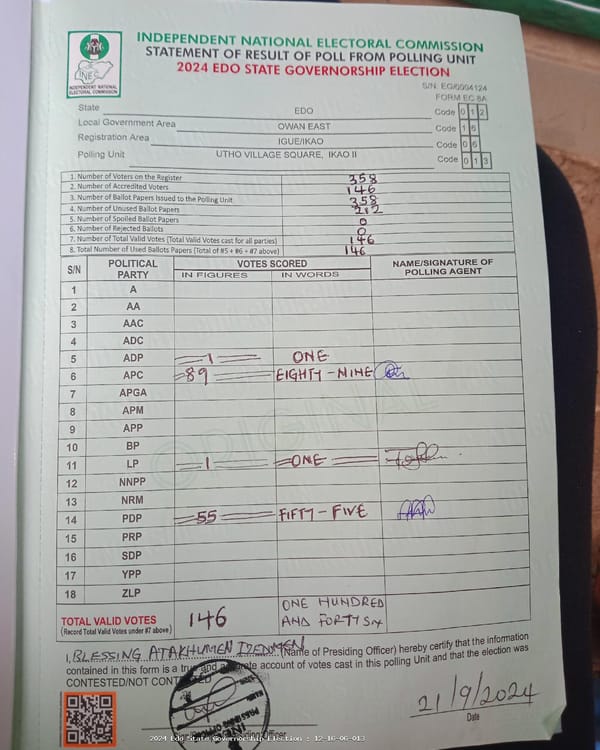 INDEPENDENT NATIONAL ELECTORAL COMMISSION
STATEMENT OF RESULT OF POLL FROM POLLING UNIT
2024 EDO STATE GOVERNORSHIP ELECTION
INEC
INDEPENDENT NATIONAL
ELECTORAL COMMISSION
S/N: EG/0004124
FORM EC 8A
State EDO Code 0 1 2
Local Government Area OWAN EAST Code 1 6
Registration Area IGUE/IKAO Code 0 6
Polling Unit UTHO VILLAGE SQUARE, IKAO II Code 0 1 3
1. Number of Voters on the Register 358
2. Number of Accredited Voters 146
3. Number of Ballot Papers Issued to the Polling Unit 358
4. Number of Unused Ballot Papers 212
5. Number of Spoiled Ballot Papers 0
6. Number of Rejected Ballots 0
7. Number of Total Valid Votes (Total Valid Votes cast for all parties) 146
8. Total Number of Used Ballots Papers (Total of #5 + #6 + #7 above) 146
S/N POLITICAL PARTY VOTES SCORED NAME/SIGNATURE OF POLLING AGENT
IN FIGURES IN WORDS
1 A
2 AA
3 AAC
4 ADC
5 ADP 1 ONE
6 APC 89 EIGHTY-NINE
7 APGA
8 APM
9 APP
10 BP
11 LP 1 ONE
12 NNPP
13 NRM
14 PDP 55 FIFTY-FIVE
15 PRP
16 SDP
17 YPP
18 ZLP
ORIGINAL
TOTAL VALID VOTES 146 ONE HUNDRED AND FORTY SIX
(Record Total Valid Votes under #7 above)
I, BLESSING ATAKHUMEN IZENMEN (Name of Presiding Officer) hereby certify that the information
contained in this form is a true and accurate account of votes cast in this polling Unit and that the election was
CONTESTED/NOT CONTESTED
21/9/2024
Date
2024 Edo State Governorship Election : 12-16-06-013